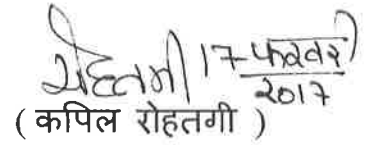 रोहतगी 17 फरवरी
2017
( कपिल रोहतगी )